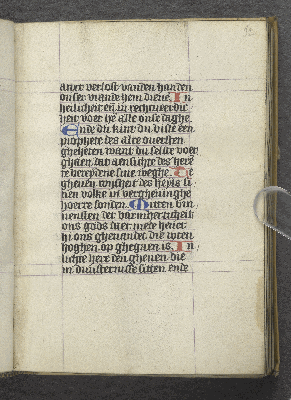 anxt verlost vanden handen
onser viande hem diene. In
heilicheit en in rechtverdic
heit voer he alle onse daghe.
Ende du kint du biste een
propheet des alre ouersten
gheheten want du selste voer
ghaen dat aensichte des here
te bereyden sine weghe. Te
gheuen conscheit des heyls si
nen volke in verghiuinghe
hoerre sonden. Mitten bin
nensten der barmherticheit
ons gods daer mede heuet
hi ons gheuandet die wten
hoghen op ghegaen is. In
lichte here den ghenen die
in duusternisse sitten ende